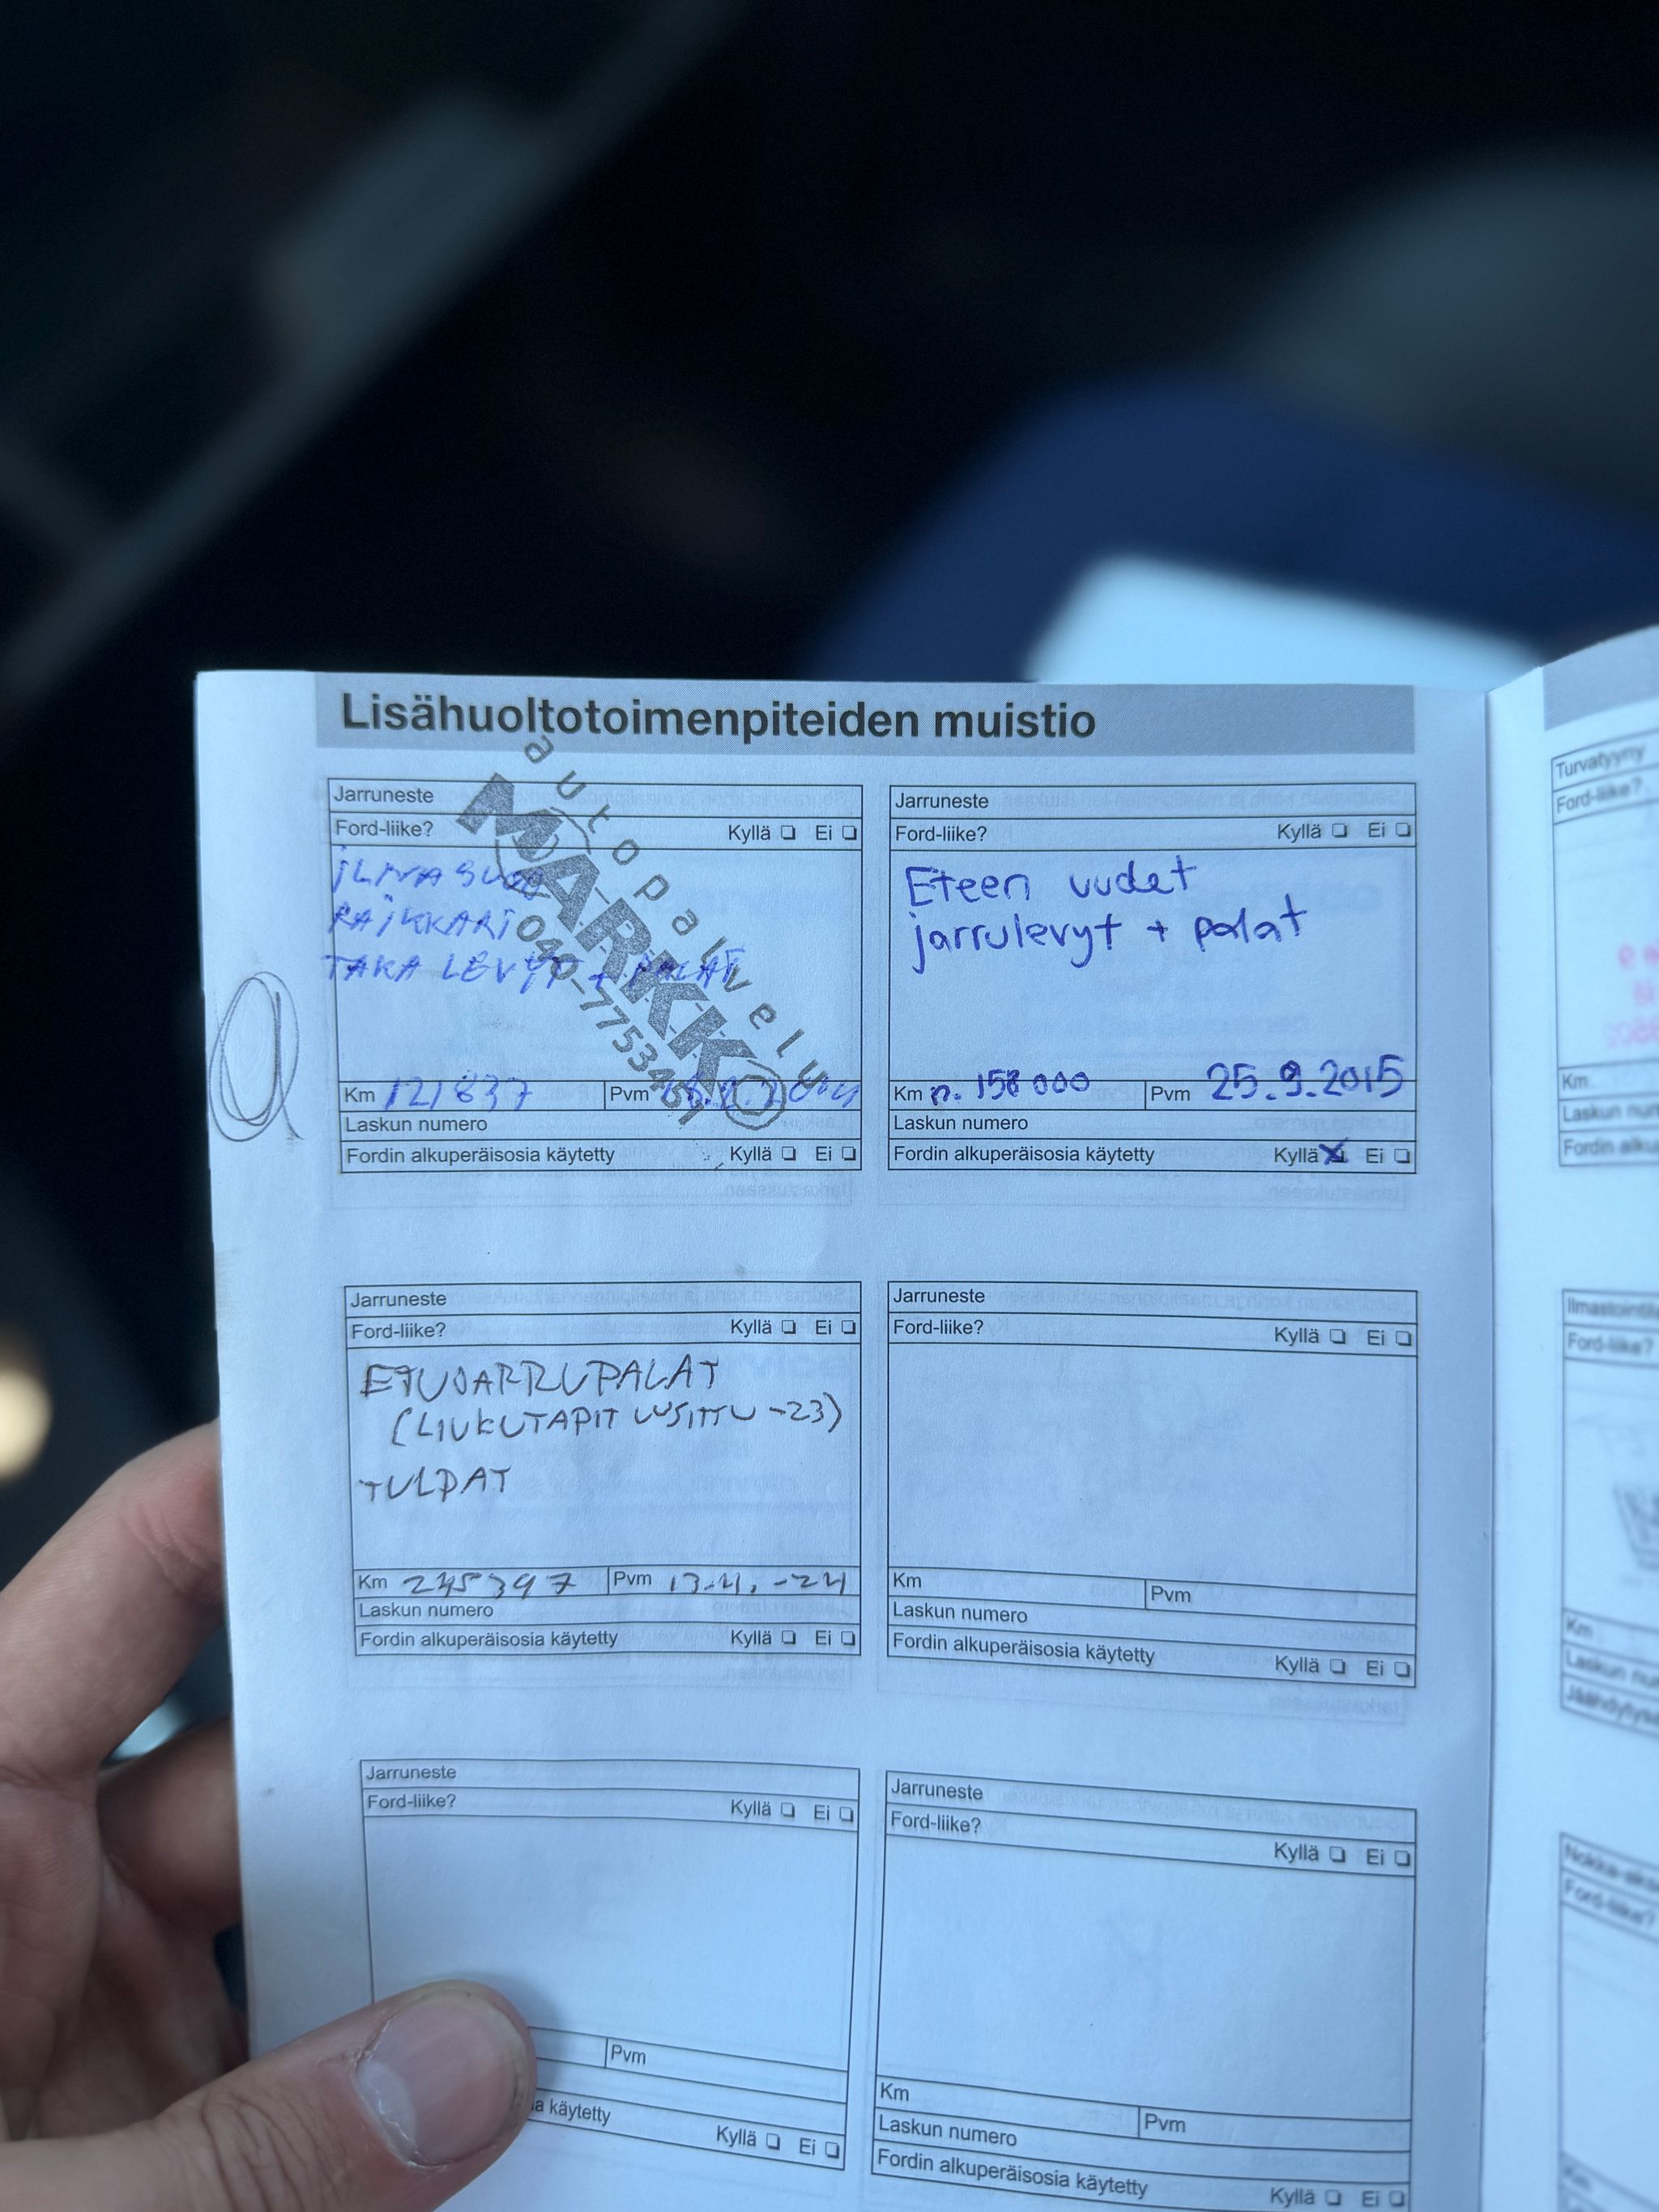 Lisähuoltotoimenpiteiden muistio
Jarruneste
Ford-liike? Kyllä ❏ Ei ❏
RAIKKARI
TAKA LEVYT + PALAT
autopalvelu
MARKKO
Km 121837 Pvm
Laskun numero
Fordin alkuperäisosia käytetty Kyllä ❏ Ei ❏
Jarruneste
Ford-liike? Kyllä ❏ Ei ❏
Eteen uudet
jarrulevyt + palat
Km n. 158 000 Pvm 25.9.2015
Laskun numero
Fordin alkuperäisosia käytetty Kyllä ☒ Ei ❏
Jarruneste
Ford-liike? Kyllä ❏ Ei ❏
ETUJARRUPALAT
(LIUKUTAPIT UUSITTU -23)
TULPAT
Km 245397 Pvm
Laskun numero
Fordin alkuperäisosia käytetty Kyllä ❏ Ei ❏
Jarruneste
Ford-liike? Kyllä ❏ Ei ❏
Km Pvm
Laskun numero
Fordin alkuperäisosia käytetty Kyllä ❏ Ei ❏
Jarruneste
Ford-liike? Kyllä ❏ Ei ❏
Pvm
käytetty Kyllä ❏ Ei ❏
Jarruneste
Ford-liike? Kyllä ❏ Ei ❏
Km Pvm
Laskun numero
Fordin alkuperäisosia käytetty Kyllä ❏ Ei ❏
Turvatyyny
Ford-liike?
Km
Laskun num
Fordin alku
Ilmastointila
Ford-liike?
Km
Laskun nu
Jäähdytys
Nokka-aks
Ford-liike?
Km